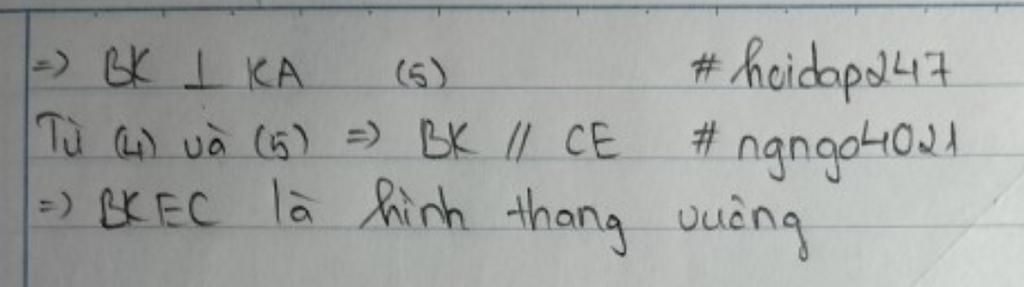 => BK ⊥ KA (5) #hoidap247
Từ (4) và (5) => BK // CE #ngngo4021
=> BKEC là hình thang vuông